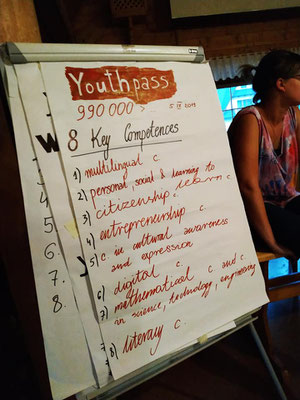 Youthpass
990 000 >
5. IV 2019
8 Key Competences
1) multilingual c.
2) personal, social & learning to
learn c
3) citizenship c.
4) entrepreneurship c.
5) c. in cultural awareness
and expression
6) digital c.
7) mathematical c. and c.
in science, technology, engineering
8) literacy c.
W
4
5.
6.
7.
8.